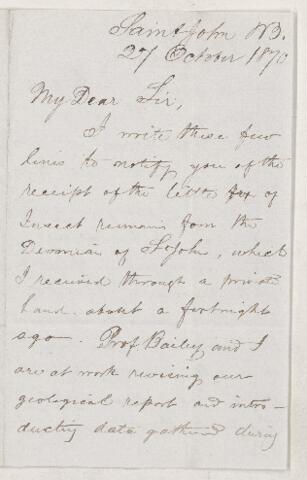 Saint John N.B.
27 October 1870
My Dear Sir,
I write these few
lines to notify you of the
receipt of the little box of
Insect remains from the
Devonian of St John, which
I received through a private
hand about a fortnight
ago. Prof. Bailey and I
are at work revising our
geological report and intro-
ducting data gathered during